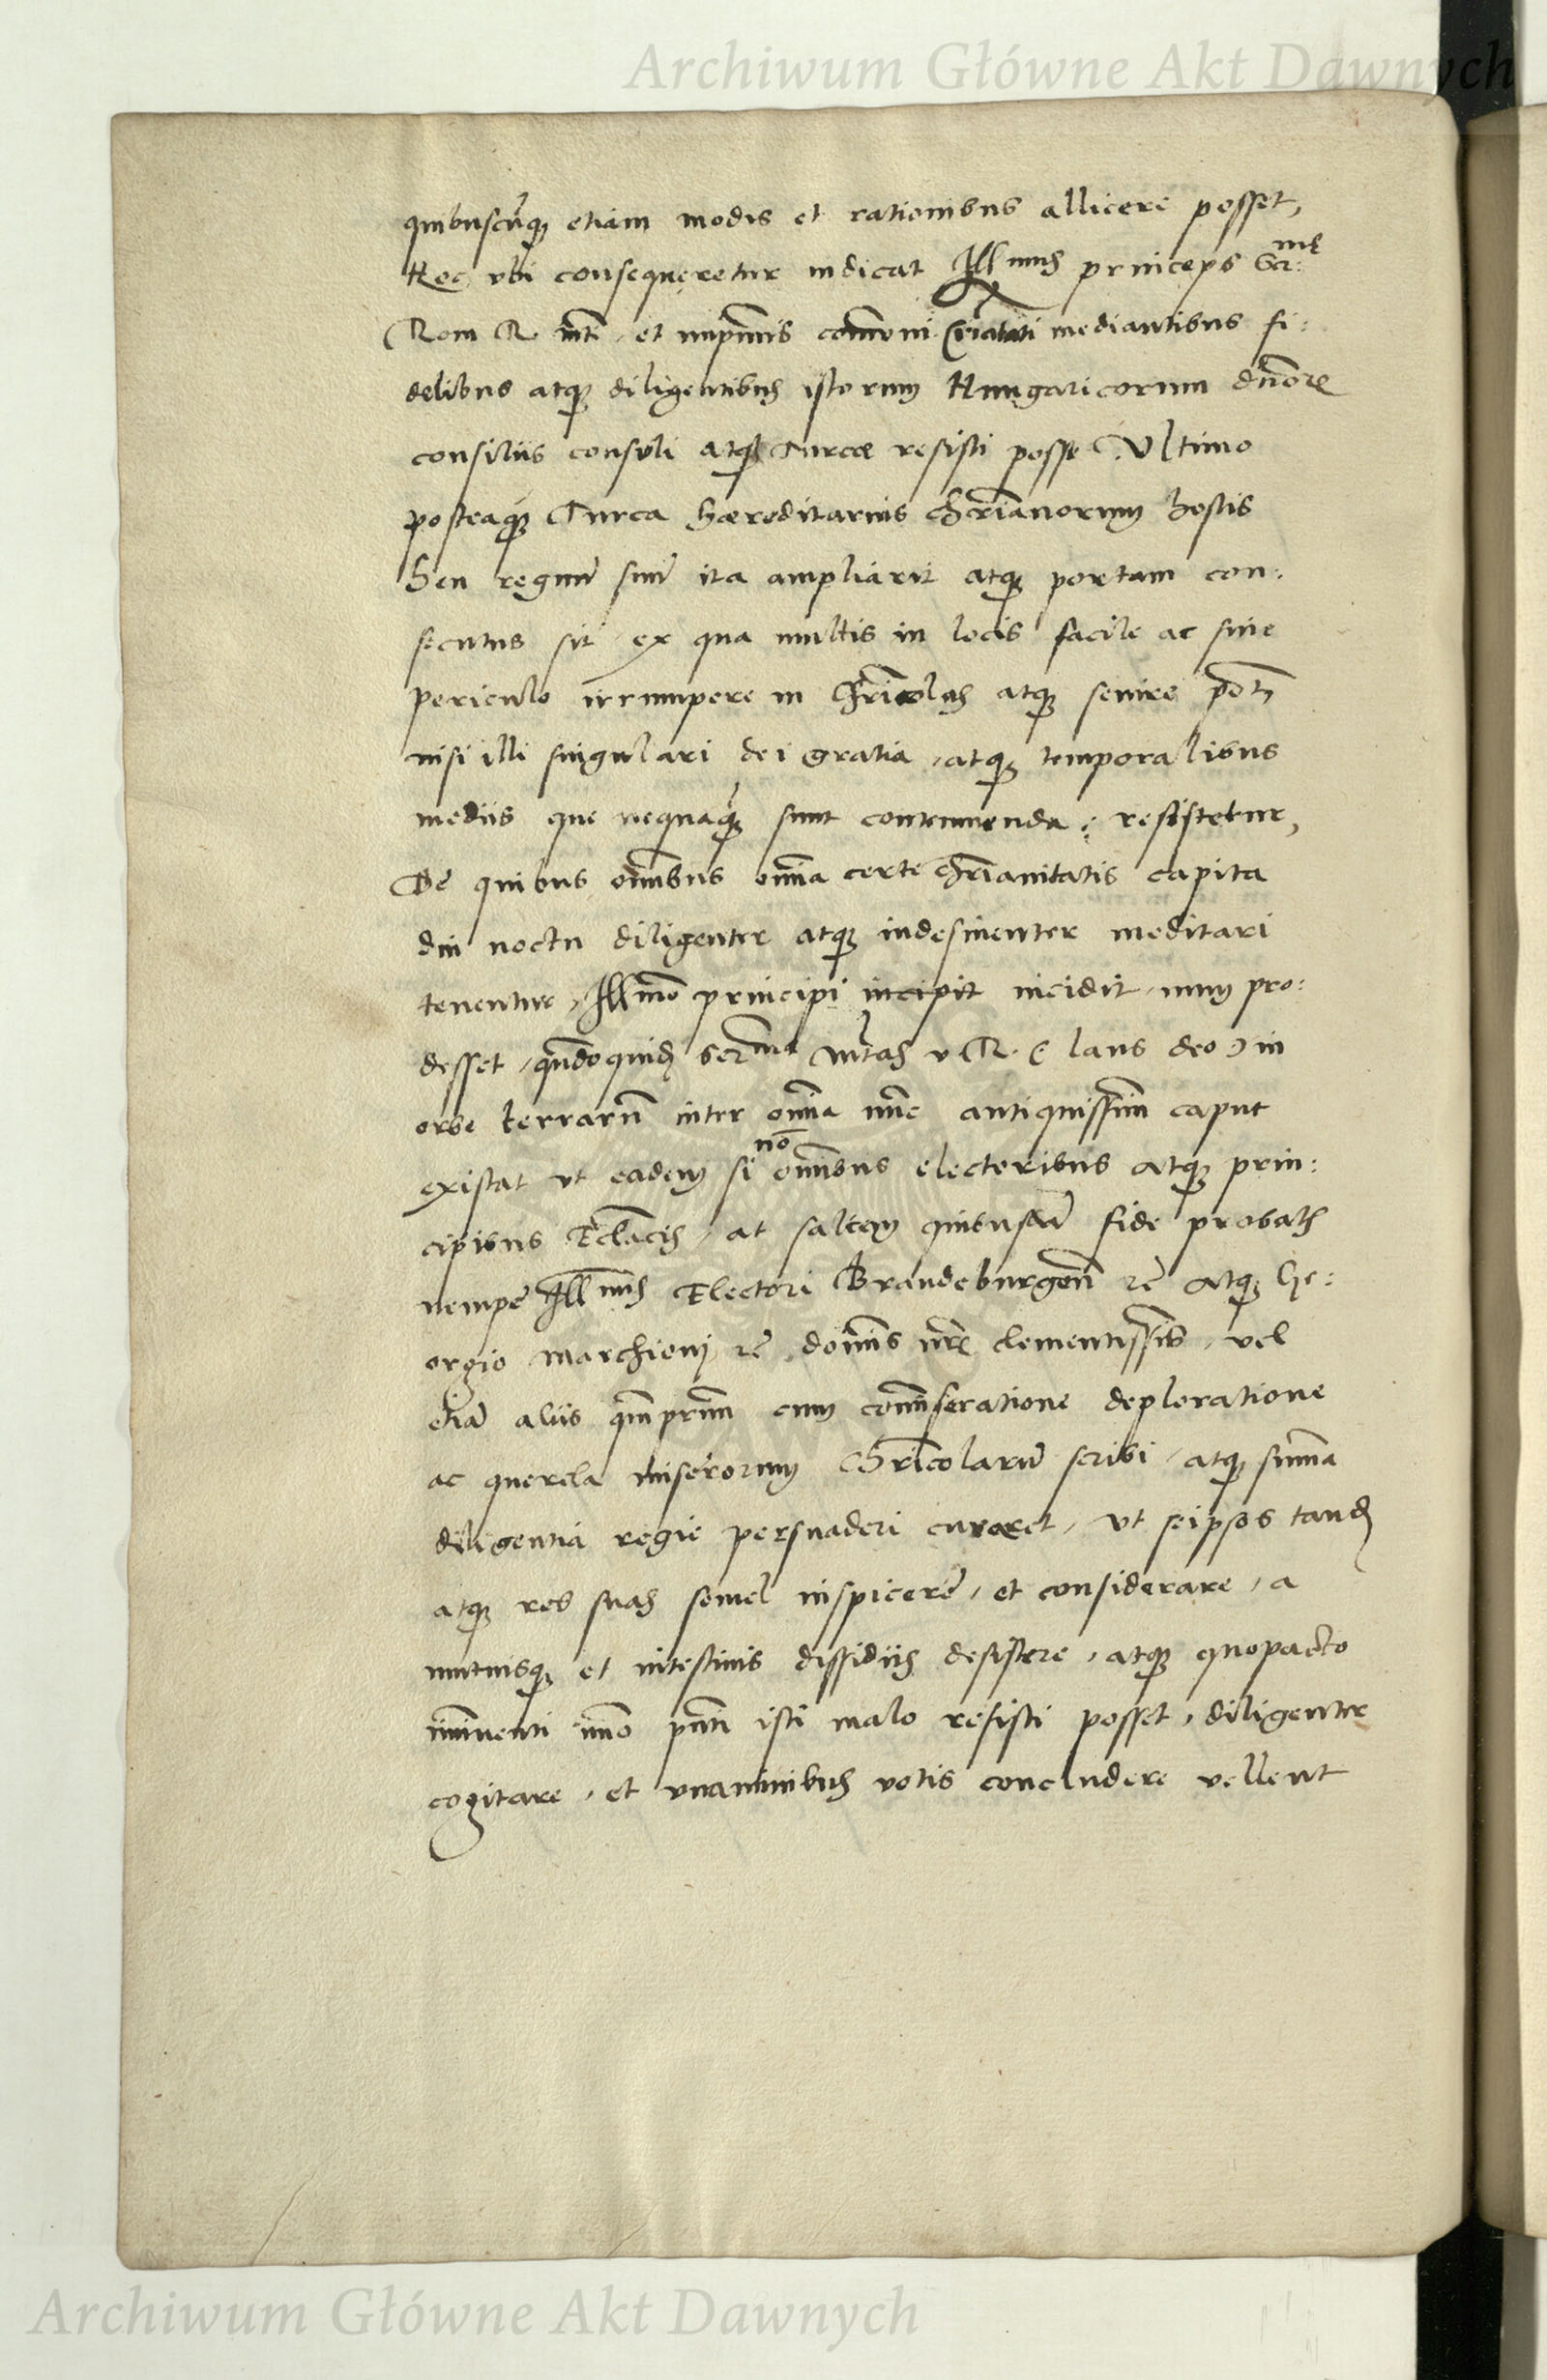 Archiwum Główne Akt Dawnych
quibuscūq₃ etiam modis et rationibus allicere posset,
Hec vbi consequeretur indicat Illmus princeps Sar: me
Rom R. mti, et imprimis comuni Criatati mediantibus fi:
delibus atq₃ diligentibus istorum Hungaricorum dnore
consiliis consuli atq₃ Turcæ resisti posse Vltimo
posteaq₃ Turca hæreditarius christianorum hostis
heu regnū suū ita ampliarit atq₃ portam con:
secutus sit, ex qua multis in locis facile ac sine
periculo irrumpere in christicolas atq₃ seuire pōt,
nisi illi singulari dei gratia, atq₃ temporalibus
mediis que nequaq₃ sunt contemnenda, resistetur,
De quibus omībus omīa certe chrianitatis capita
diu noctu diligenter atq₃ indesinenter meditari
tenentur, Illmo principi incipit incidit, num pro:
desset, quandoquid serma Mtas v R. (laus deo) in
orbe terrarū inter omīa nunc antiquissimū caput
existat vt eadem si nō omībus electoribus atq₃ prin:
cipibus at saltem quibusdā fide probatis
nempe Illmis Electori Brandeburgen̄ rē atq₃ Ge:
orgio Marchioni rē, dominis nris clementissimis, vel
etiā aliis quamprimū cum comiseratione deploratione
ac querela miserorum Christicolarū scribi, atq₃ summa
diligentia regie persuaderi curaret, vt seipsos tandē
atq₃ res suas semel inspicere, et considerare, a
mutuisq₃ et intestinis dissidiis desistere, atq₃ quopacto
iminenti imo pnti isti malo resisti posset, diligenter
cogitare, et vnanimibus votis concludere vellent
Archiwum Główne Akt Dawnych